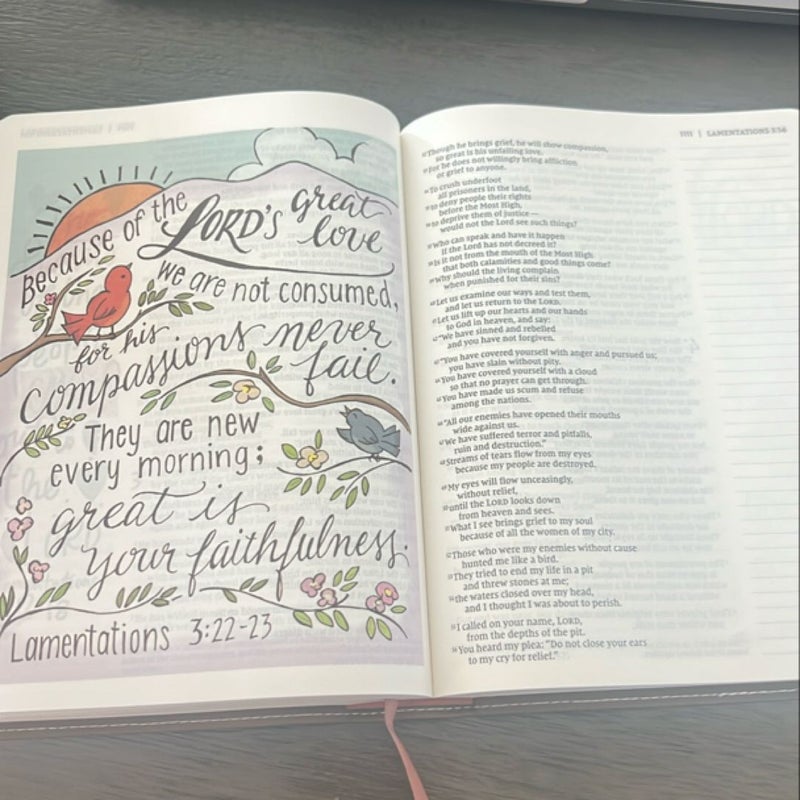 Because of the
LORD'S great
love
we are not consumed,
for his
compassions never
fail.
They are new
every morning;
great is
your faithfulness.
Lamentations 3:22-23
1111 | LAMENTATIONS 3:56
Though he brings grief, he will show compassion,
so great is his unfailing love.
For he does not willingly bring affliction
or grief to anyone.
To crush underfoot
all prisoners in the land,
to deny people their rights
before the Most High,
to deprive them of justice—
would not the Lord see such things?
Who can speak and have it happen
if the Lord has not decreed it?
Is it not from the mouth of the Most High
that both calamities and good things come?
Why should the living complain
when punished for their sins?
Let us examine our ways and test them,
and let us return to the LORD.
Let us lift up our hearts and our hands
to God in heaven, and say:
"We have sinned and rebelled
and you have not forgiven.
"You have covered yourself with anger and pursued us;
you have slain without pity.
You have covered yourself with a cloud
so that no prayer can get through.
You have made us scum and refuse
among the nations.
"All our enemies have opened their mouths
wide against us.
We have suffered terror and pitfalls,
ruin and destruction."
Streams of tears flow from my eyes
because my people are destroyed.
My eyes will flow unceasingly,
without relief,
until the LORD looks down
from heaven and sees.
What I see brings grief to my soul
because of all the women of my city.
Those who were my enemies without cause
hunted me like a bird.
They tried to end my life in a pit
and threw stones at me;
the waters closed over my head,
and I thought I was about to perish.
I called on your name, LORD,
from the depths of the pit.
You heard my plea: "Do not close your ears
to my cry for relief."